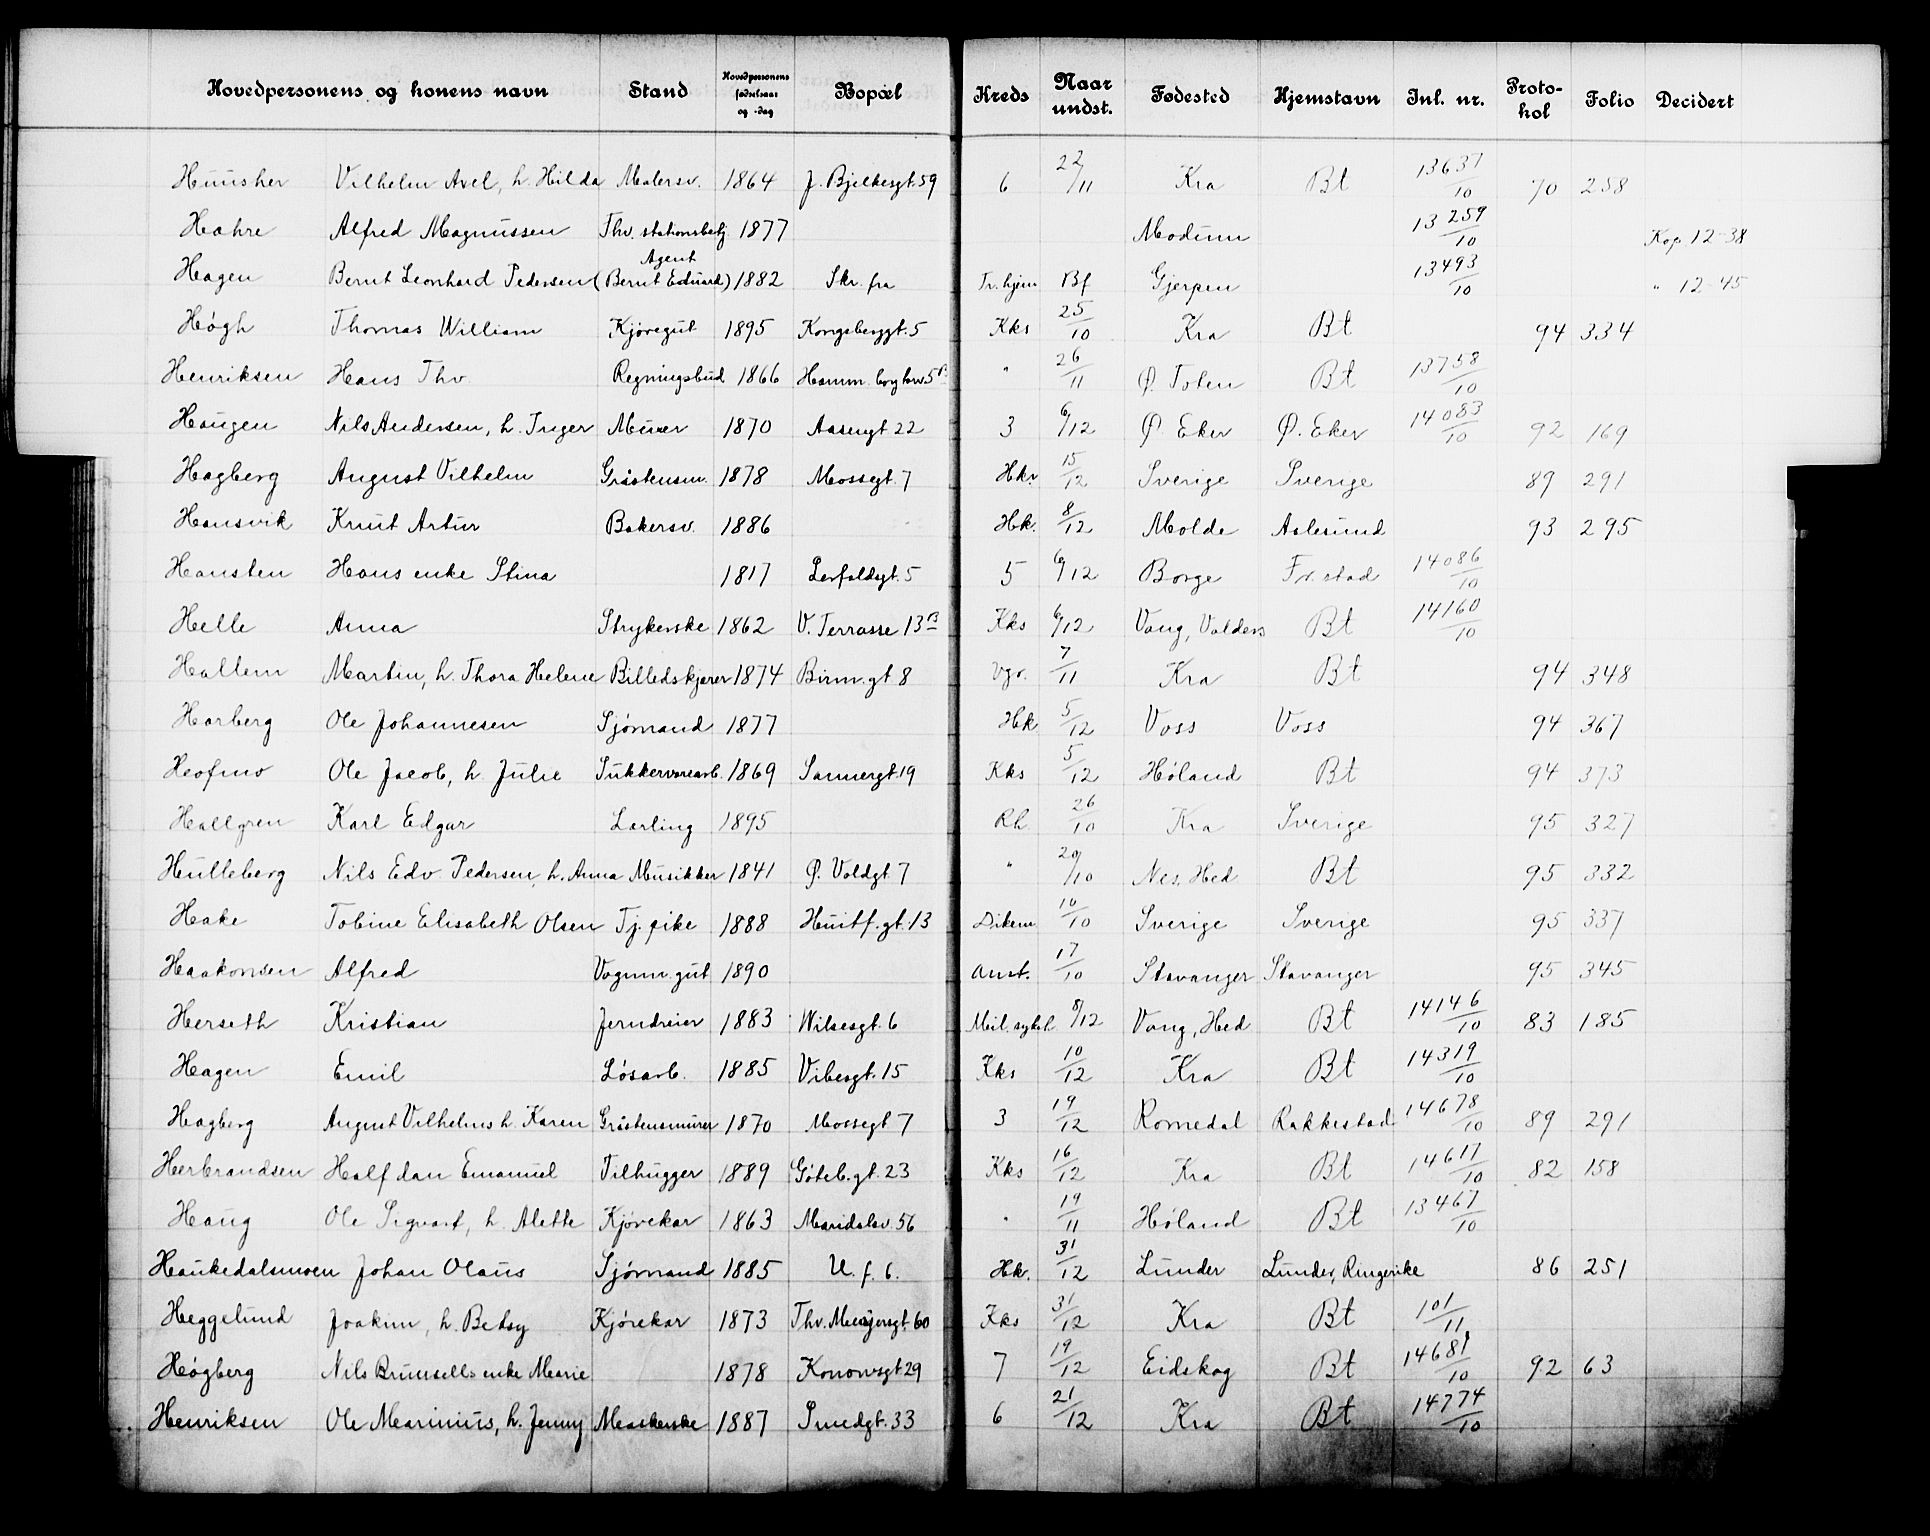 Hovedpersonens og konens navn Stand Hovedpersonens fødselsaar og -dag Bopæl Kreds Naar undst. Fødested Hjemstavn Inl. nr. Proto-kol Folio Decidert
Huusher Vilhelm Axel, h. Hilda Malersv. 1864 J. Bjelkesgt. 59 6 22/11 Kra Bt 13637/10 70 258
Hahre Alfred Magnussen Thv. stationsbetj. 1877 Modum 13259/10 Kop. 12-38
Hagen Bernt Leonhard Pedersen (Bernt Eduard) Agent 1882 Skr. fra Tr. hjem Bf Gjerpen 13493/10 " 12-45
Høgh Thomas William Kjøregut 1895 Kongsberggt. 5 Kks 25/10 Kra Bt 94 334
Henriksen Hans Thv. Regningsbud 1866 " 26/11 Ø. Toten Bt 13758/10
Haugen Nils Andersen, h. Inger Murer 1870 Aasengt 22 3 6/12 Ø. Eker Ø. Eker 14083/10 92 169
Hagberg August Vilhelm Gråstensm. 1878 Mossegt. 7 Hkr. 15/12 Sverige Sverige 89 291
Hansvik Knut Artur Bakersv. 1886 Hk. 8/12 Molde Aalesund 93 295
Hansten Hans enke Stina 1817 Lerfaldsgt. 5 5 6/12 Borge Fr.stad 14086/10
Helle Anna Strykerske 1862 V. Terrasse 13 B Kks 6/12 Vang, Valders Bt 14160/10
Hallem Martin, h. Thora Helene Billedskjærer 1874 Birm. gt 8 Vgr. 7/11 Kra Bt 94 348
Harberg Ole Johannesen Sjømand 1877 Hk 5/12 Voss Voss 94 367
Hofmo Ole Jacob, h. Julie Sukkervarearb. 1869 Sannergt. 19 Kks 5/12 Høland Bt 94 373
Hallgren Karl Edgar Lærling 1895 Rh 26/10 Kra Sverige 95 327
Hulleberg Nils Edv. Pedersen, h. Anna Musikker 1841 Ø. Voldgt. 7 " 20/10 Nes, Hed. Bt 95 332
Hake Tobine Elisabeth Olsen Tj. pike 1888 Huitf. gt. 13 Dikem. 10/10 Sverige Sverige 95 337
Haakonsen Alfred Vognm. gut 1890 Anst. 17/10 Stavanger Stavanger 95 345
Herseth Kristian Jerndreier 1883 Nilsesgt. 6 Mil. sykeh. 8/12 Vang, Hed Bt 14146/10 83 185
Hagen Emil Løsarb. 1885 Vibesgt. 15 Kks 10/12 Kra Bt 14319/10
Hagberg August Vilhelms h. Karen Gråstensmurer 1870 Mossegt 7 3 19/12 Romedal Rakkestad 14678/10 89 291
Herbrandsen Halfdan Emanuel Tilhugger 1889 Gøteb. gt. 23 Kks 16/12 Kra Bt 14617/10 82 158
Haug Ole Sigvart, h. Alette Kjørekar 1863 Maridalsv. 56 " 19/11 Høland Bt 13467/10
Haukedalsmoen Johan Olaus Sjømand 1885 U. f. b. Hk. 31/12 Lunder Lunder, Ringerike 86 251
Heggelund Joakim, h. Betsy Kjørekar 1873 Thv. Meyersgt. 60 Kks 31/12 Kra Bt 101/11
Høgberg Nils Brunsells enke Marie 1878 Kanonsgt 29 7 19/12 Eidskog Bt 14681/10 92 63
Henriksen Ole Marinius, h. Jenny Maskerske 1887 Smedgt. 33 6 21/12 Kra Bt 14774/10